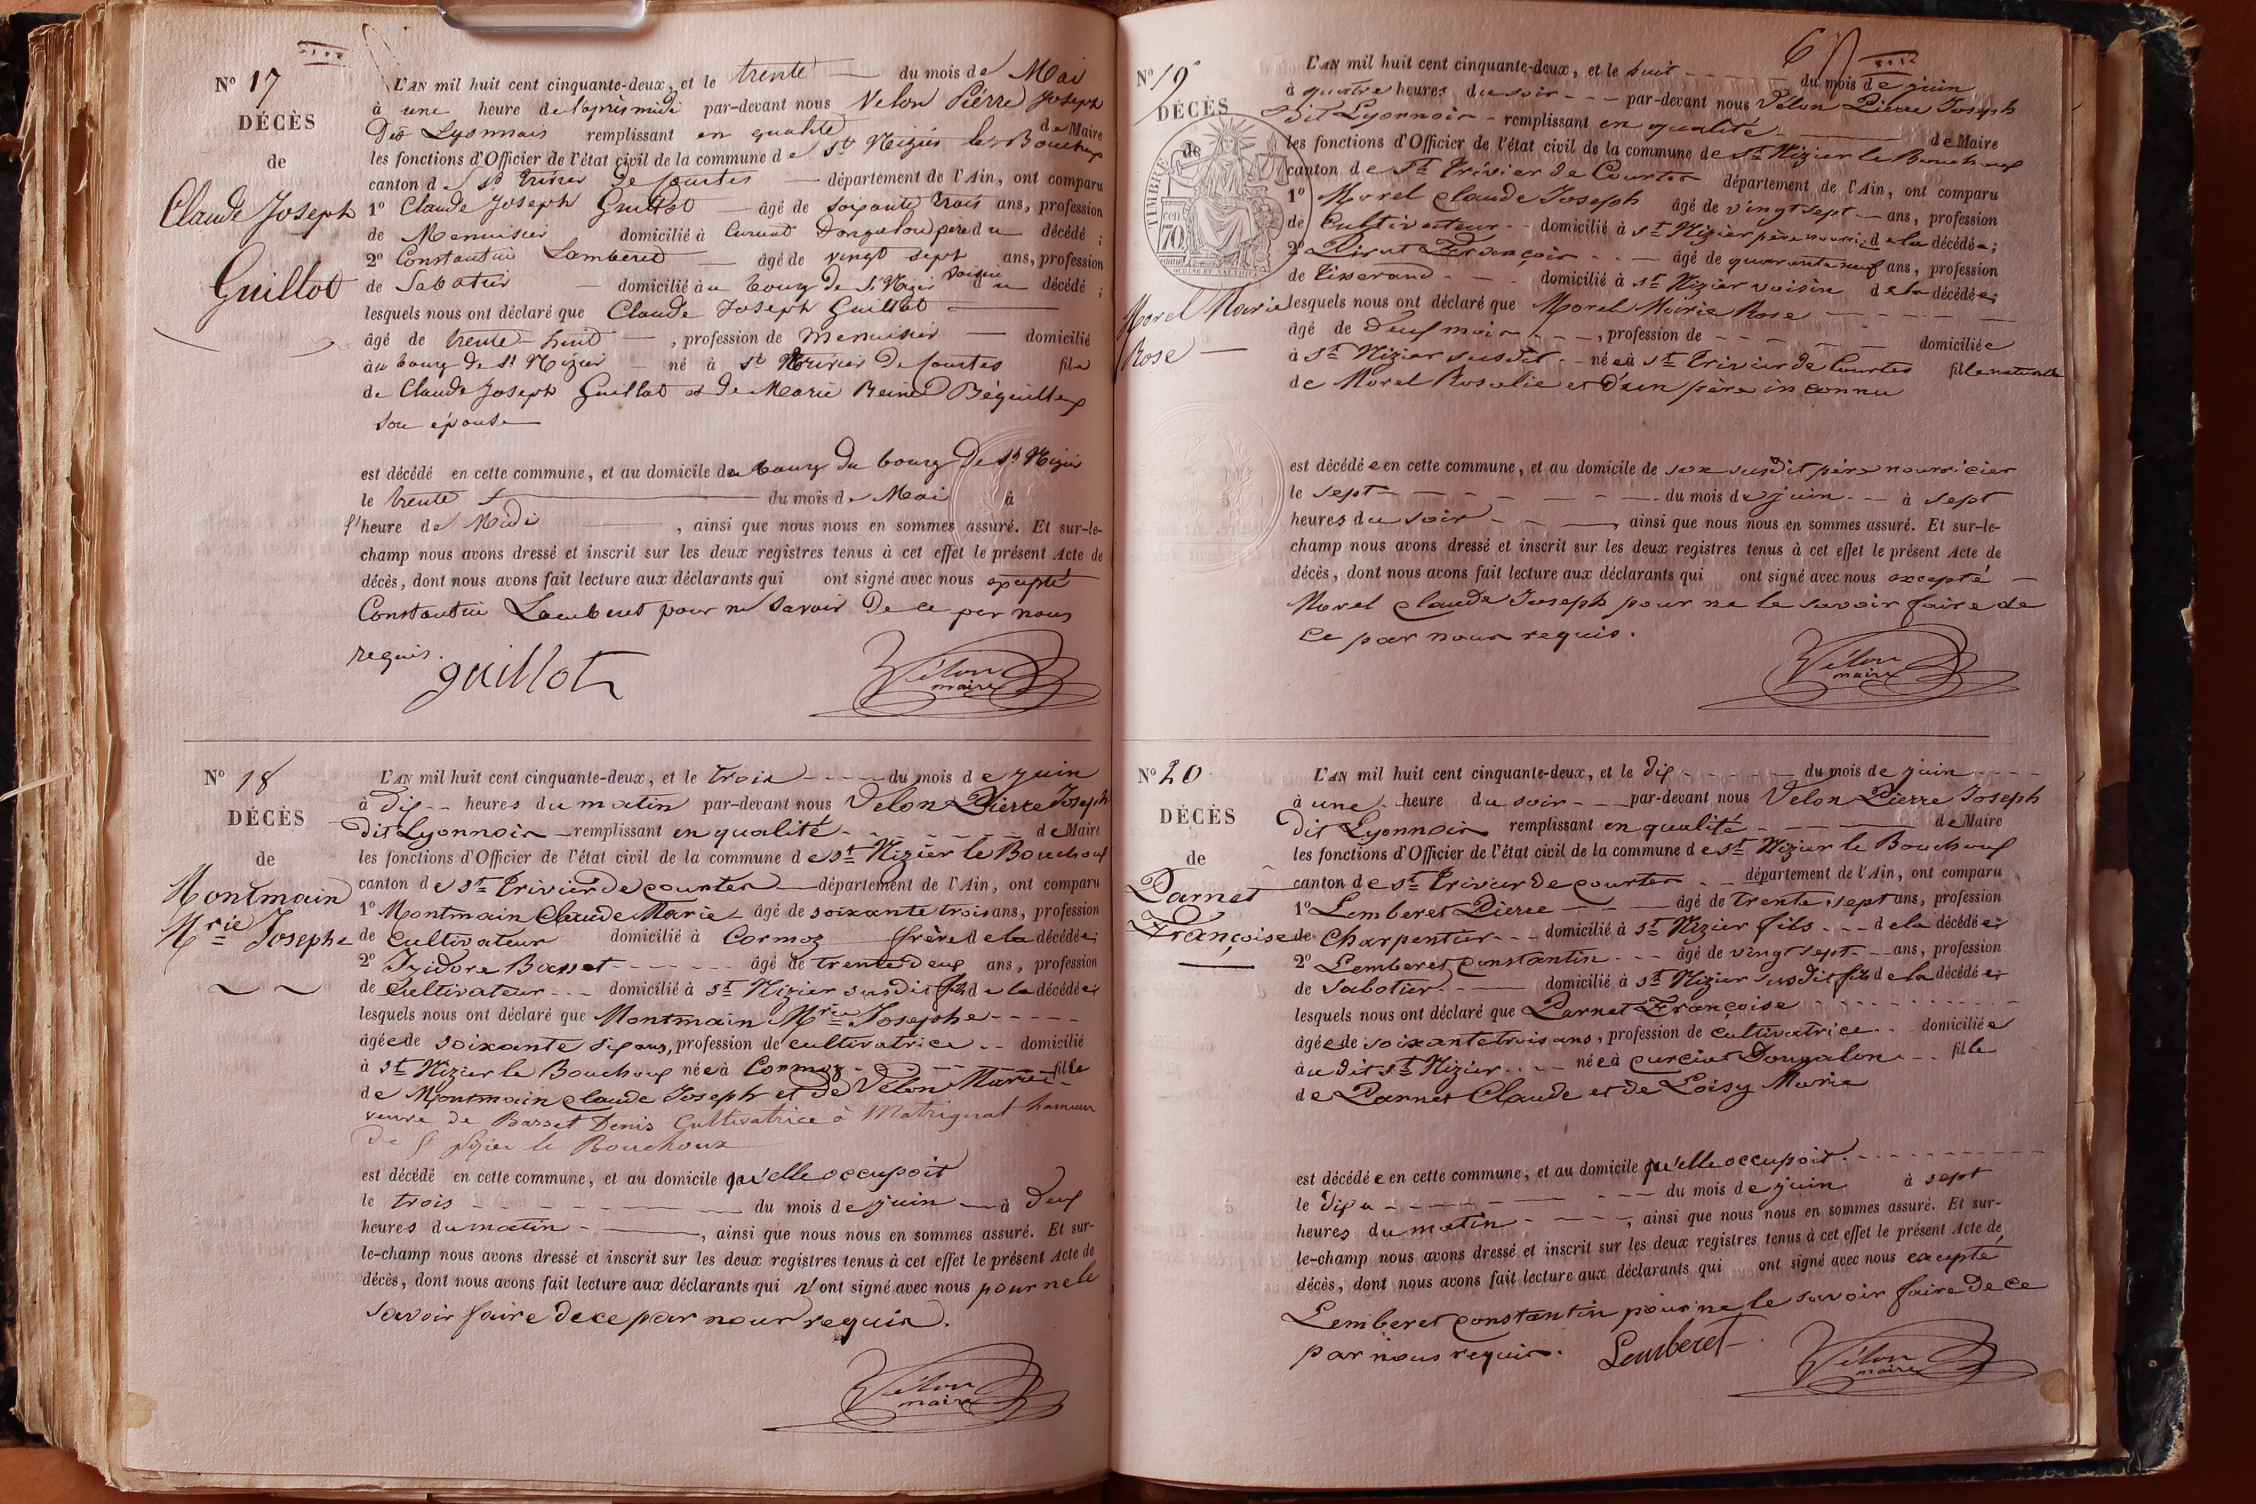 N° 17
DÉCÈS
de
Claude Joseph
Guillot
L'AN mil huit cent cinquante-deux, et le trente du mois de Mai
à une heure de l'après midi par-devant nous Velon Pierre Joseph
Dit Lyonnais remplissant en qualité de Maire
les fonctions d'Officier de l'état civil de la commune de St Nizier le Bouchoux
canton de St Trivier de Courtes département de l'Ain, ont comparu
1° Claude Joseph Guillot âgé de soixante trois ans, profession
de Menuisier domicilié à Curciat Dongalon père du décédé ;
2° Constantin Lamberet âgé de vingt sept ans, profession
de Sabotier domicilié au bourg de St Nizier voisin du décédé ;
lesquels nous ont déclaré que Claude Joseph Guillot
âgé de trente-huit, profession de Menuisier domicilié
au bourg de St Nizier né à St Trivier de Courtes fils
de Claude Joseph Guillot et de Marie Reine
son épouse
est décédé en cette commune, et au domicile du bourg du bourg de St Nizier
le trente du mois de Mai à
l'heure de Midi, ainsi que nous nous en sommes assuré. Et sur-le-
champ nous avons dressé et inscrit sur les deux registres tenus à cet effet le présent Acte de
décès, dont nous avons fait lecture aux déclarants qui ont signé avec nous excepté
Constantin Lamberet pour ne savoir De ce par nous
requis.
guillot
Vélon
maire
N° 18
DÉCÈS
de
Montmain
Mrie Josephe
L'AN mil huit cent cinquante-deux, et le trois du mois de juin
à dix heures du matin par-devant nous Velon Pierre Joseph
dit Lyonnois remplissant en qualité de Maire
les fonctions d'Officier de l'état civil de la commune de St Nizier le Bouchoux
canton de St Trivier de courtes département de l'Ain, ont comparu
1° Montmain Claude Marie âgé de soixante trois ans, profession
de cultivateur domicilié à Cormoz frère de la décédée ;
2° Izidore Basset âgé de trente deux ans, profession
de Cultivateur domicilié à St Nizier susdit fils de la décédée ;
lesquels nous ont déclaré que Montmain Mrie Josephe
âgée de soixante six ans, profession de cultivatrice domicilié
à St Nizier le Bouchoux née à Cormoz fille
de Montmain claude Joseph et de Velon Marie
veuve de Basset Denis Cultivatrice à Matrignat hameau
de St Nizier le Bouchoux
est décédé en cette commune, et au domicile qu'elle occupoit
le trois du mois de juin à deux
heures du matin, ainsi que nous nous en sommes assuré. Et sur-
le-champ nous avons dressé et inscrit sur les deux registres tenus à cet effet le présent Acte de
décès, dont nous avons fait lecture aux déclarants qui n'ont signé avec nous pour ne le
savoir faire de ce par nous requis.
Vélon
maire
N° 19
DÉCÈS
de
TIMBRE
70
Morel Marie
Rose
L'AN mil huit cent cinquante-deux, et le huit du mois de juin
à quatre heures du soir par-devant nous Velon Pierre Joseph
dit Lyonnois remplissant en qualité de Maire
les fonctions d'Officier de l'état civil de la commune de St Nizier le Bouchoux
canton de St Trivier de Courtes département de l'Ain, ont comparu
1° Morel claude Joseph âgé de vingt sept ans, profession
de Cultivateur domicilié à St Nizier père nourri de la décédée ;
2° âgé de quarante neuf ans, profession
de Tisserand domicilié à St Nizier voisin de la décédée ;
lesquels nous ont déclaré que Morel Marie Rose
âgé de deux mois, profession de domiciliée
à St Nizier susdit née à St Trivier de Courtes fille naturelle
de Morel Rosalie et d'un père inconnu
est décédée en cette commune, et au domicile de son susdit père nourricier
le sept du mois de juin à sept
heures du soir, ainsi que nous nous en sommes assuré. Et sur-le-
champ nous avons dressé et inscrit sur les deux registres tenus à cet effet le présent Acte de
décès, dont nous avons fait lecture aux déclarants qui ont signé avec nous excepté
Morel claude Joseph pour ne le savoir faire de
ce par nous requis.
Vélon
maire
N° 20
DÉCÈS
de
Parnet
Françoise
L'AN mil huit cent cinquante-deux, et le dix du mois de juin
à une heure du soir par-devant nous Velon Pierre Joseph
dit Lyonnois remplissant en qualité de Maire
les fonctions d'Officier de l'état civil de la commune de St Nizier le Bouchoux
canton de St Trivier de courtes département de l'Ain, ont comparu
1° Lemberet Pierre âgé de trente sept ans, profession
de charpentier domicilié à St Nizier fils de la décédée ;
2° Lemberet constantin âgé de vingt sept ans, profession
de sabotier domicilié à St Nizier susdit fils de la décédée ;
lesquels nous ont déclaré que Parnet Françoise
âgée de soixante trois ans, profession de cultivatrice domiciliée
au dit St Nizier née à curciat Dongalon fille
de Parnet Claude et de Loisy Marie
est décédée en cette commune, et au domicile qu'elle occupoit
le dix du mois de juin à sept
heures du matin, ainsi que nous nous en sommes assuré. Et sur-
le-champ nous avons dressé et inscrit sur les deux registres tenus à cet effet le présent Acte de
décès, dont nous avons fait lecture aux déclarants qui ont signé avec nous excepté
Lemberet constantin pour ne le savoir faire de ce
par nous requis. Lemberet
Vélon
maire